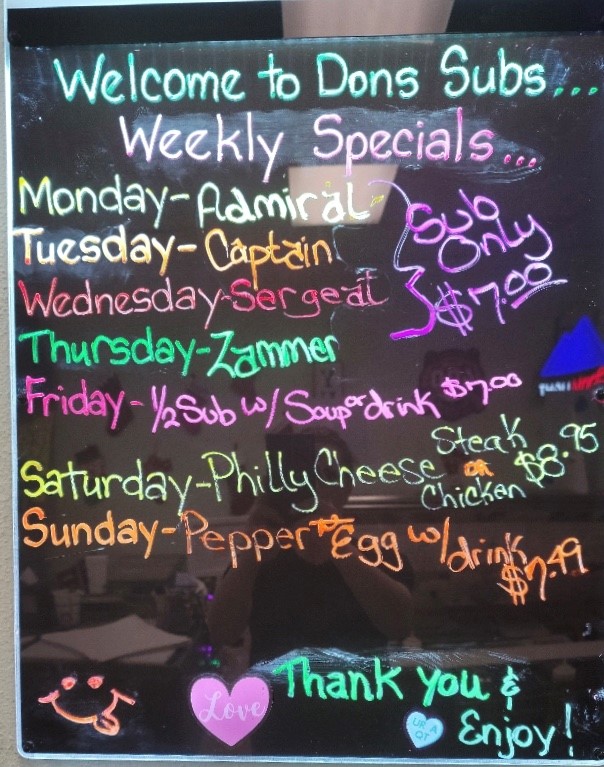 Welcome to Dons Subs...
Weekly Specials...
Monday-Admiral
Tuesday-Captain
Wednesday-Sergeat
Sub Only
$7.00
Thursday-Zammer
Friday-1/2 Sub w/ Soup or drink $7.00
Saturday-Philly Cheese Steak or Chicken $8.95
Sunday-Pepper Egg w/drink $7.49
Thank you &
Enjoy!
Love
UR A
QT